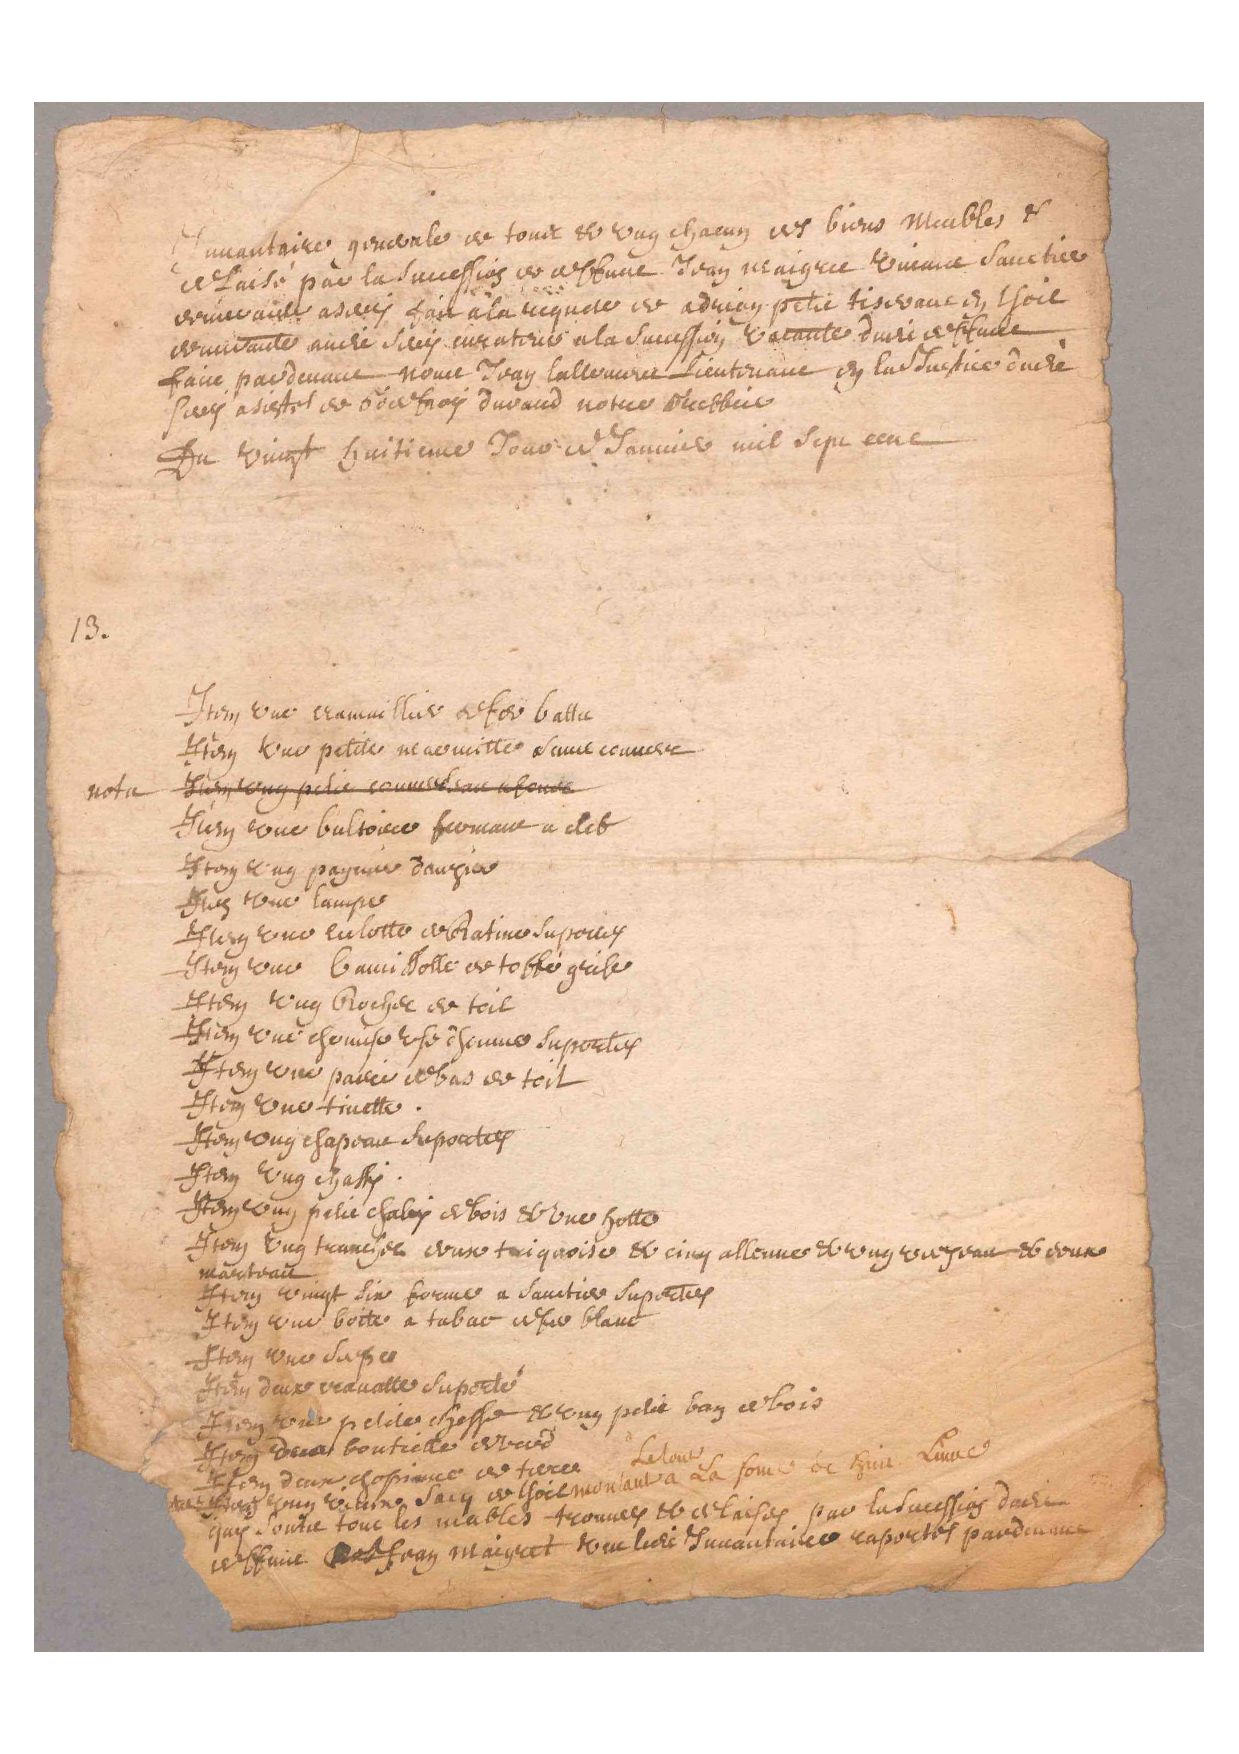 Inuantaire generale de tout & vng chacung des biens Meubles &
delaisé par la sucession de deffunt Jean maigret viuant sauetier
demeurant a fait a la requete de adrien petit tiserant en thoil
demeurant audit curateur a la sucession vacante dudit deffunt
faite pardeuant nous Jean lallement Lieutenant en la Justice dudit
asisté de durand notre Greffier
Du vingt huitieme Jour de Januier mil sept cent
13.
Item vne cramaillier de fer battu
Item vne petite marmitte sans couuert
nota Item vng petit
Item vne fermant a cleb
Item vng pagnier d'ausier
Item vne lampe
Item vne culotte de Ratine suportés
Item vne de toffe grise
Item vng Rochet de toil
Item vne chemise vsé d'homme suportés
Item vne paire de bas de toil
Item vne tinette .
Item vng chapeau suportés
Item vng chassi .
Item vng petit chalis de bois & vne hotte
Item vng tranchet deux triquoise & cinq allenne & vng & deux
marteau
Item vingt six forme a sauetier suportés
Item vne boitte a tabac de fer blanc
Item vne serpe
Item deux crauatte suporté
Item vne petite & vng petit banq de bois
Item deux boutielle de verd
Item deux chopinne de terre Le tout
Item vng vieux sacq de thoil montant a La some de huit Liure
quy sontte tout les mables trouués & delaisés par la sucession dudit
deffunt Jean maigret & audit Inuantaire raportés pardeuant